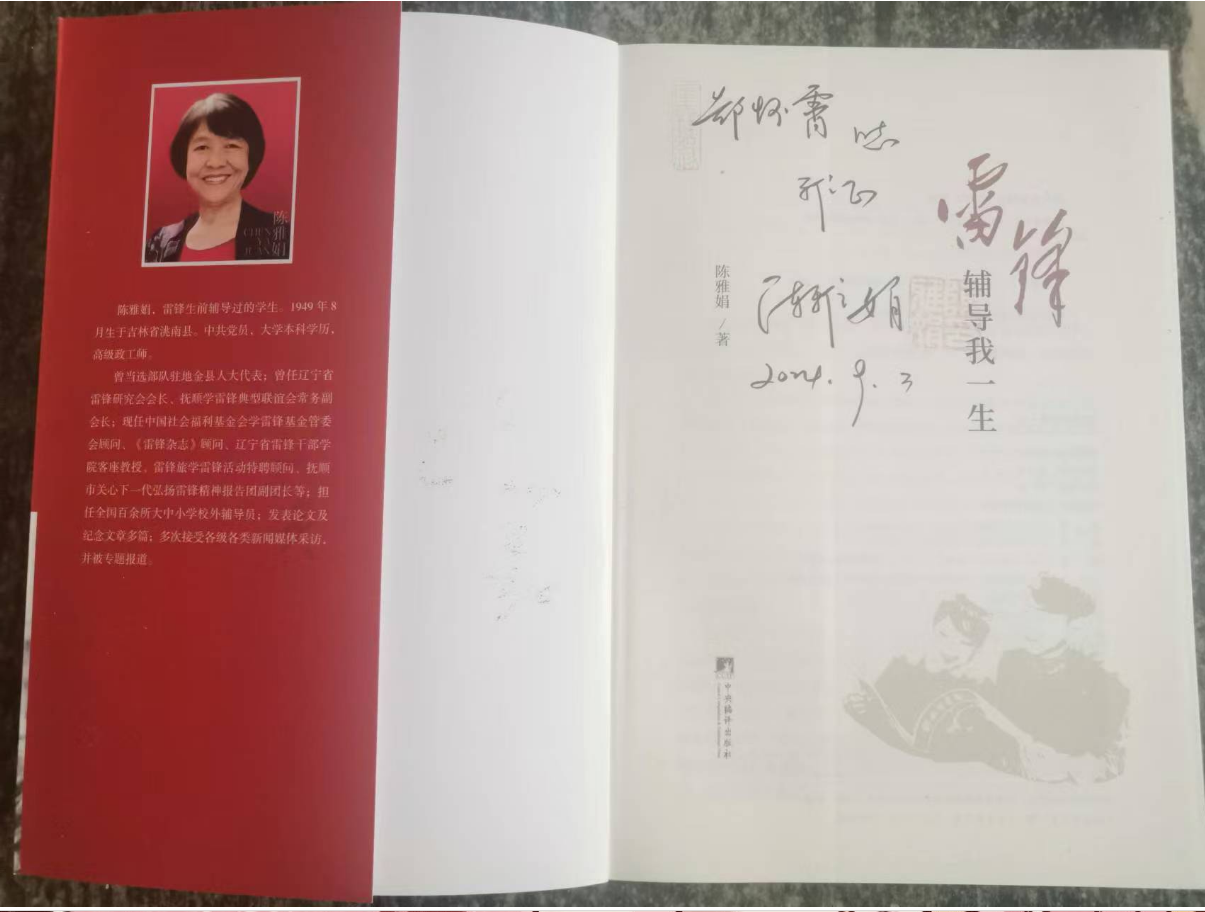 陈雅娟
CHEN
YA
JUAN
陈雅娟，雷锋生前辅导过的学生。1949 年 8
月生于吉林省洮南县。中共党员，大学本科学历，
高级政工师。
曾当选部队驻地金县人大代表；曾任辽宁省
雷锋研究会会长、抚顺学雷锋典型联谊会常务副
会长；现任中国社会福利基金会学雷锋基金管委
会顾问、《雷锋杂志》顾问、辽宁省雷锋干部学
院客座教授。雷锋旅学雷锋活动特聘顾问、抚顺
市关心下一代弘扬雷锋精神报告团副团长等；担
任全国百余所大中小学校外辅导员；发表论文及
纪念文章多篇；多次接受各级各类新闻媒体采访，
并被专题报道。
郑怀霄 同志
雅正
雷锋
辅导我一生
陈雅娟／著
陈雅娟
2024.9.3
中央编译出版社